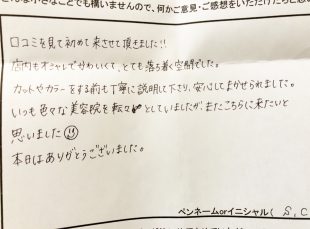 んな小さなことでも構いませんので、何かご意見・ご感想をいただけたらと思い
口コミを見て初めて来させて頂きました!!
店内もオシャレでかわいくて、とても落ち着く空間でした。
カットやカラーをする前も丁寧に説明して下さり、安心してまかせられました。
いつも色々な美容院を転々としていましたが、またこちらに来たいと
思いました☺
本日はありがとうございました。
ペンネームorイニシャル( S.C